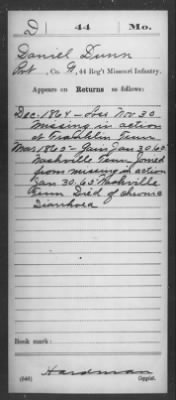 D 44 Mo.
Daniel Dunn
Pvt, Co. G, 44 Reg't Missouri Infantry.
Appears on Returns as follows:
Dec. 1864 - Loss Nov 30
Missing in action
at Franklin Tenn
Mar 1865 - Gain Jan 30 65
Nashville Tenn Joined
from missing in action
Jan 30. 65 Nashville
Tenn Died of chronic
Diarrhoea
Book mark:
Hardman
(546) Copyist.